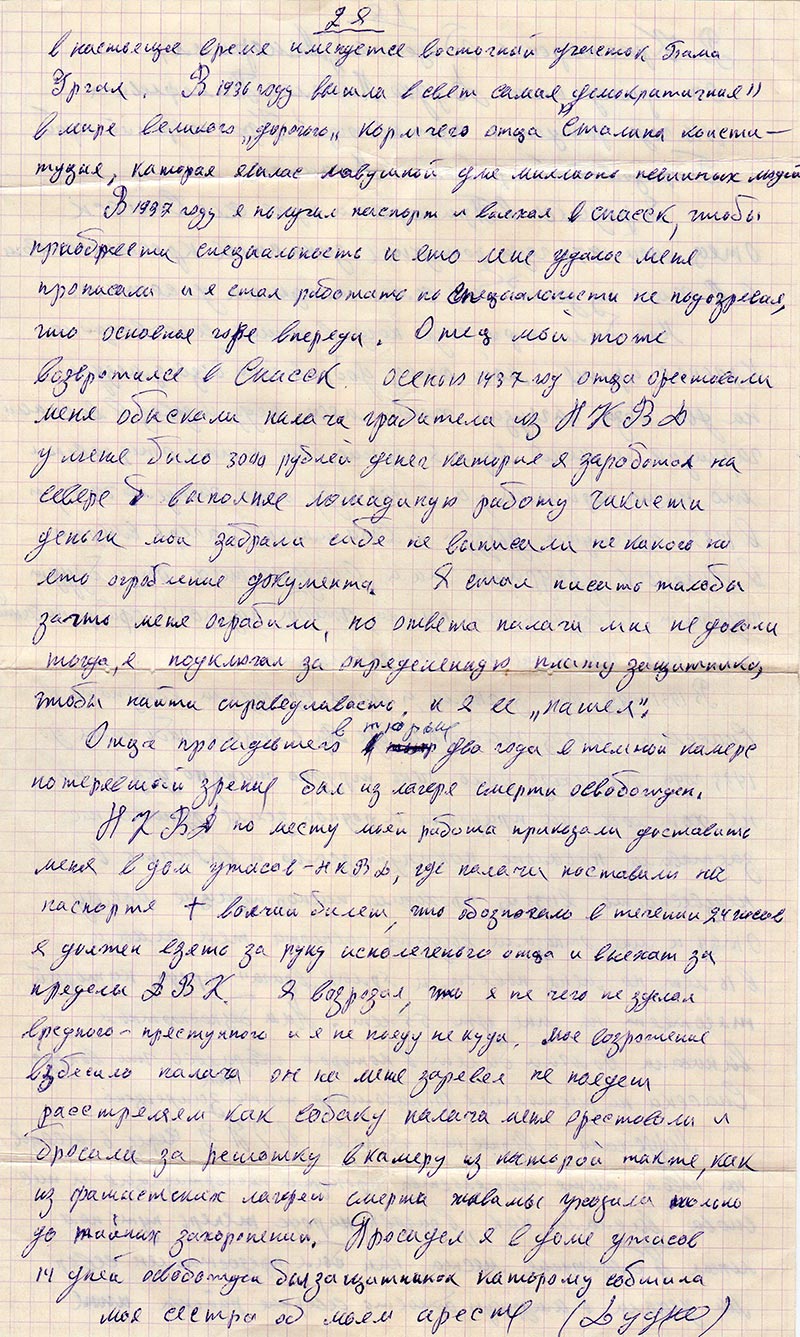 2 Я
в настоящее время именуется восточный участок Бама
Ургал. В 1936 году вышла в свет самая „демократичная"
в мире великого „дорогого„ кормчего отца Сталина консти-
туция, каторая явилас ловушкой для миллионо невинных людей
В 1937 году я получил паспорт и выехал в Спасск, чтобы
приобрести специальность и ето мне удалос меня
прописали и я стал работать по специальности не подозревая,
что основное горе впереди. Отец мой тоже
возвротился в Спасск. осенью 1937 год отца орестовали
меня обыскали палача грабителя из НКВД
у меня было 3000 рублей денег каторые я заработал на
севере выполняе лошадиную работу чикисти
деньги мои забрали себе не выписали не какого на
ето огробление документа. Я стал писать жалобы
за что меня ограбили, но ответа палачи мне не довали
тогда, я подключал за определенную плату защитника,
чтобы найти справедлавасть, и я ее „нашел".
Отца просидевшего в тюрьме два года в темной камере
потерявший зрение был из лагеря смерти освобожден.
НКВД по месту моей работа приказали доставить
меня в дом ужасов-НКВД, где палачи поставили на
паспорте + волчий билет, что обозночало в течении 24 часов
я должен взять за руку исколеченого отца и выехат за
пределы ДВК. Я возрозал, что я не чего не зделал
вредного-преступного и я не поеду не куда. мое возрожение
взбесило палача он на меня заревел не поедеш
расстреляем как собаку палача меня орестовали и
бросали за решотку в камеру из каторой также, как
из фашистских лагерей смерти живамы уходила только
до тайных захоронений. Просидел я в доме ужасов
14 дней освободил был защитником каторому собшила
моя сестра об моем аресте (Дудко)